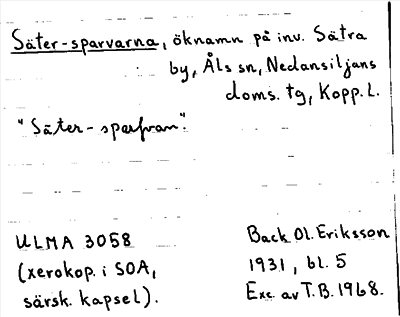 Säter-sparvarna, öknamn på inv. Sätra
by, Åls sn, Nedansiljans
doms. tg, Kopp. L.
"Säter-sparfvan".
ULMA 3058
(xerokop. i SOA,
särsk. kapsel).
Back Ol. Eriksson
1931, bl. 5
Exc. av T.B. 1968.